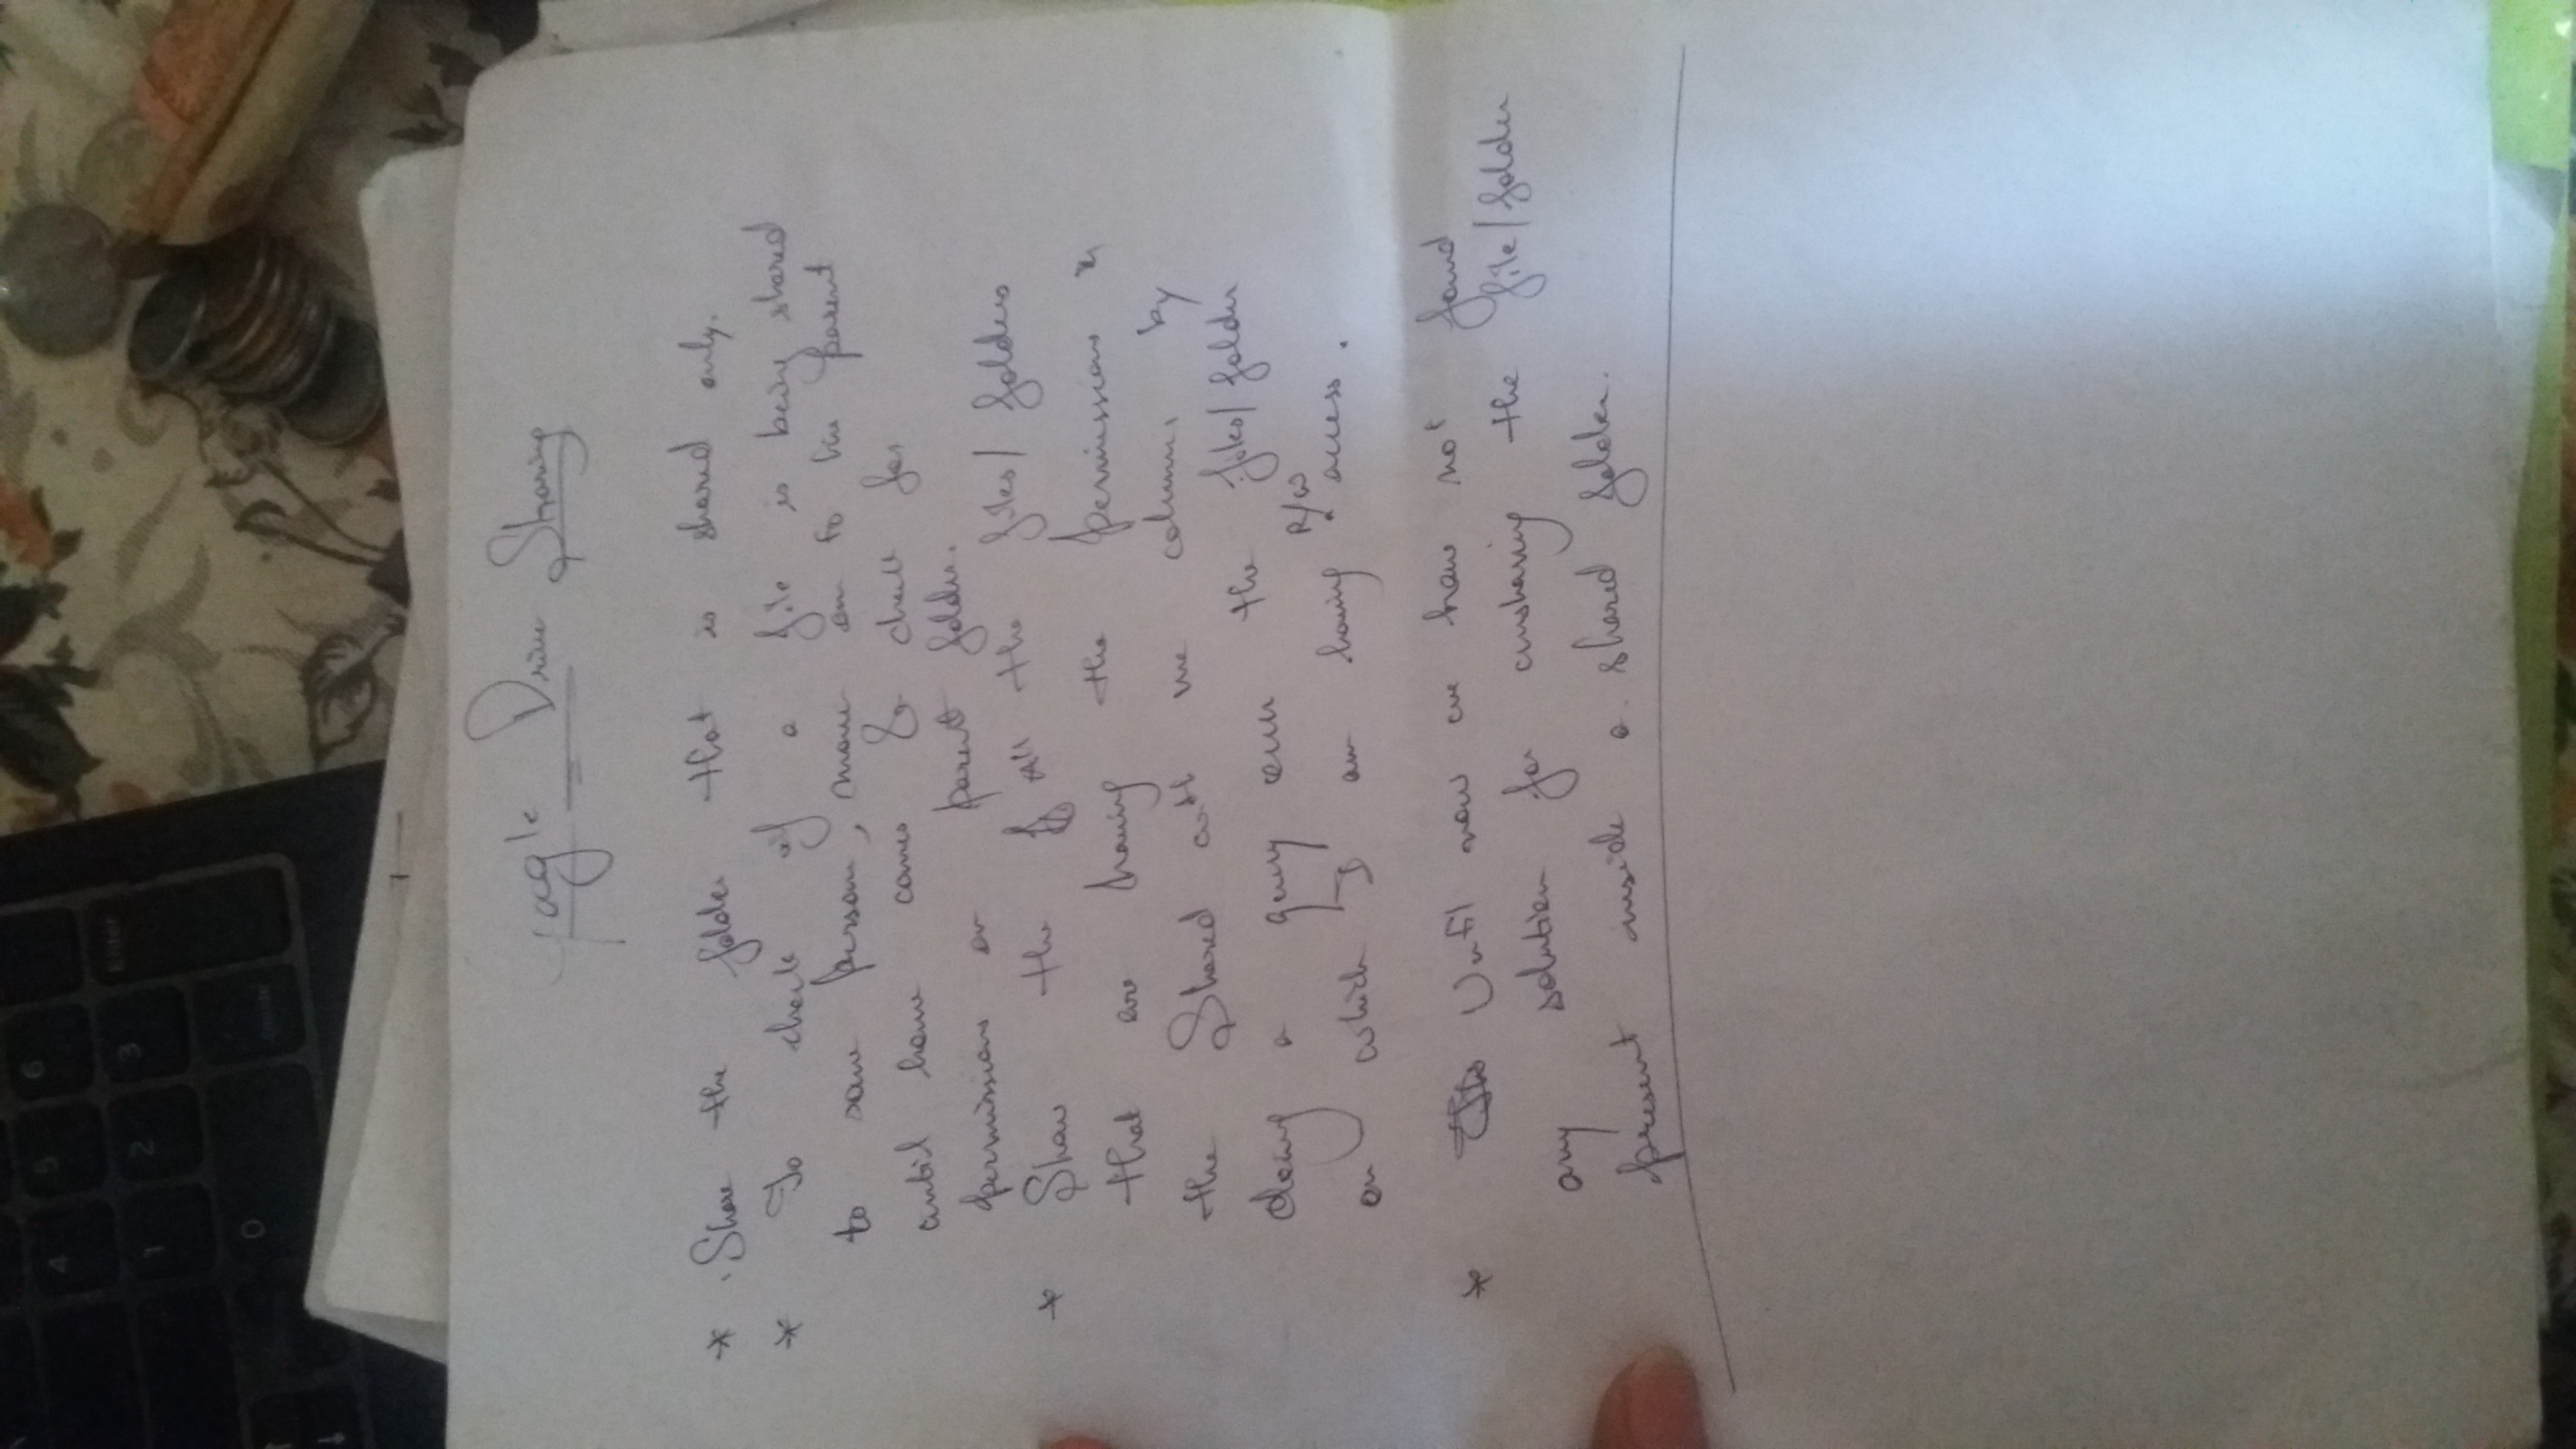 4 5 6
1 2 3 Enter
0 Delete
Google Drive Sharing
* Share the folder that is shared only.
* To check if a file is being shared
to some person, move on to the parent
until home comes & check for
permissions on parent folder.
* Show the all the files/folders
that are having the permissions in
the Shared with me column, by
doing a query over the files/folder
on which I am having R/W access.
* Until now we have not found
any solution for unsharing the file/folder
present inside a shared folder.